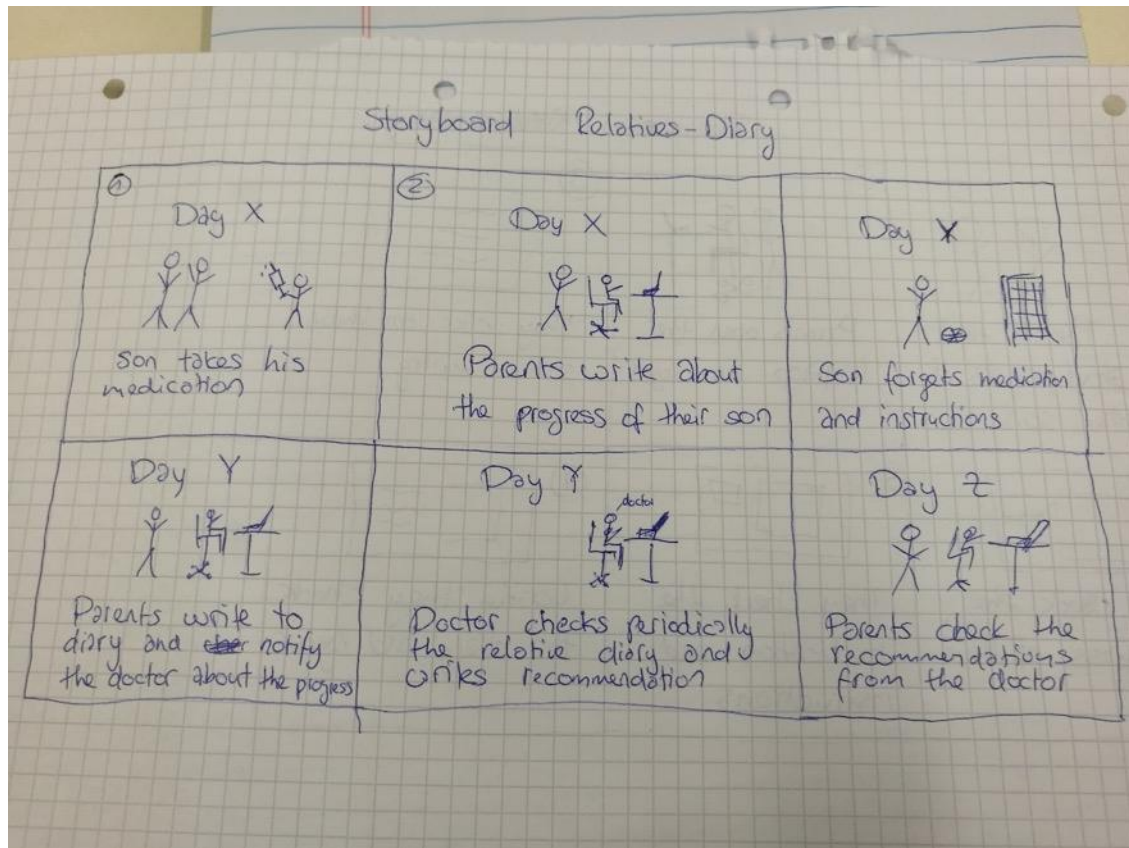 Storyboard Relatives-Diary
①
Day X
Son takes his
medication
②
Day X
Parents write about
the progress of their son
Day Y
Son forgets medication
and instructions
Day Y
Parents write to
diary and notify
the doctor about the progress
Day Y
doctor
Doctor checks periodically
the relative diary and
writes recommendation
Day Z
Parents check the
recommendations
from the doctor